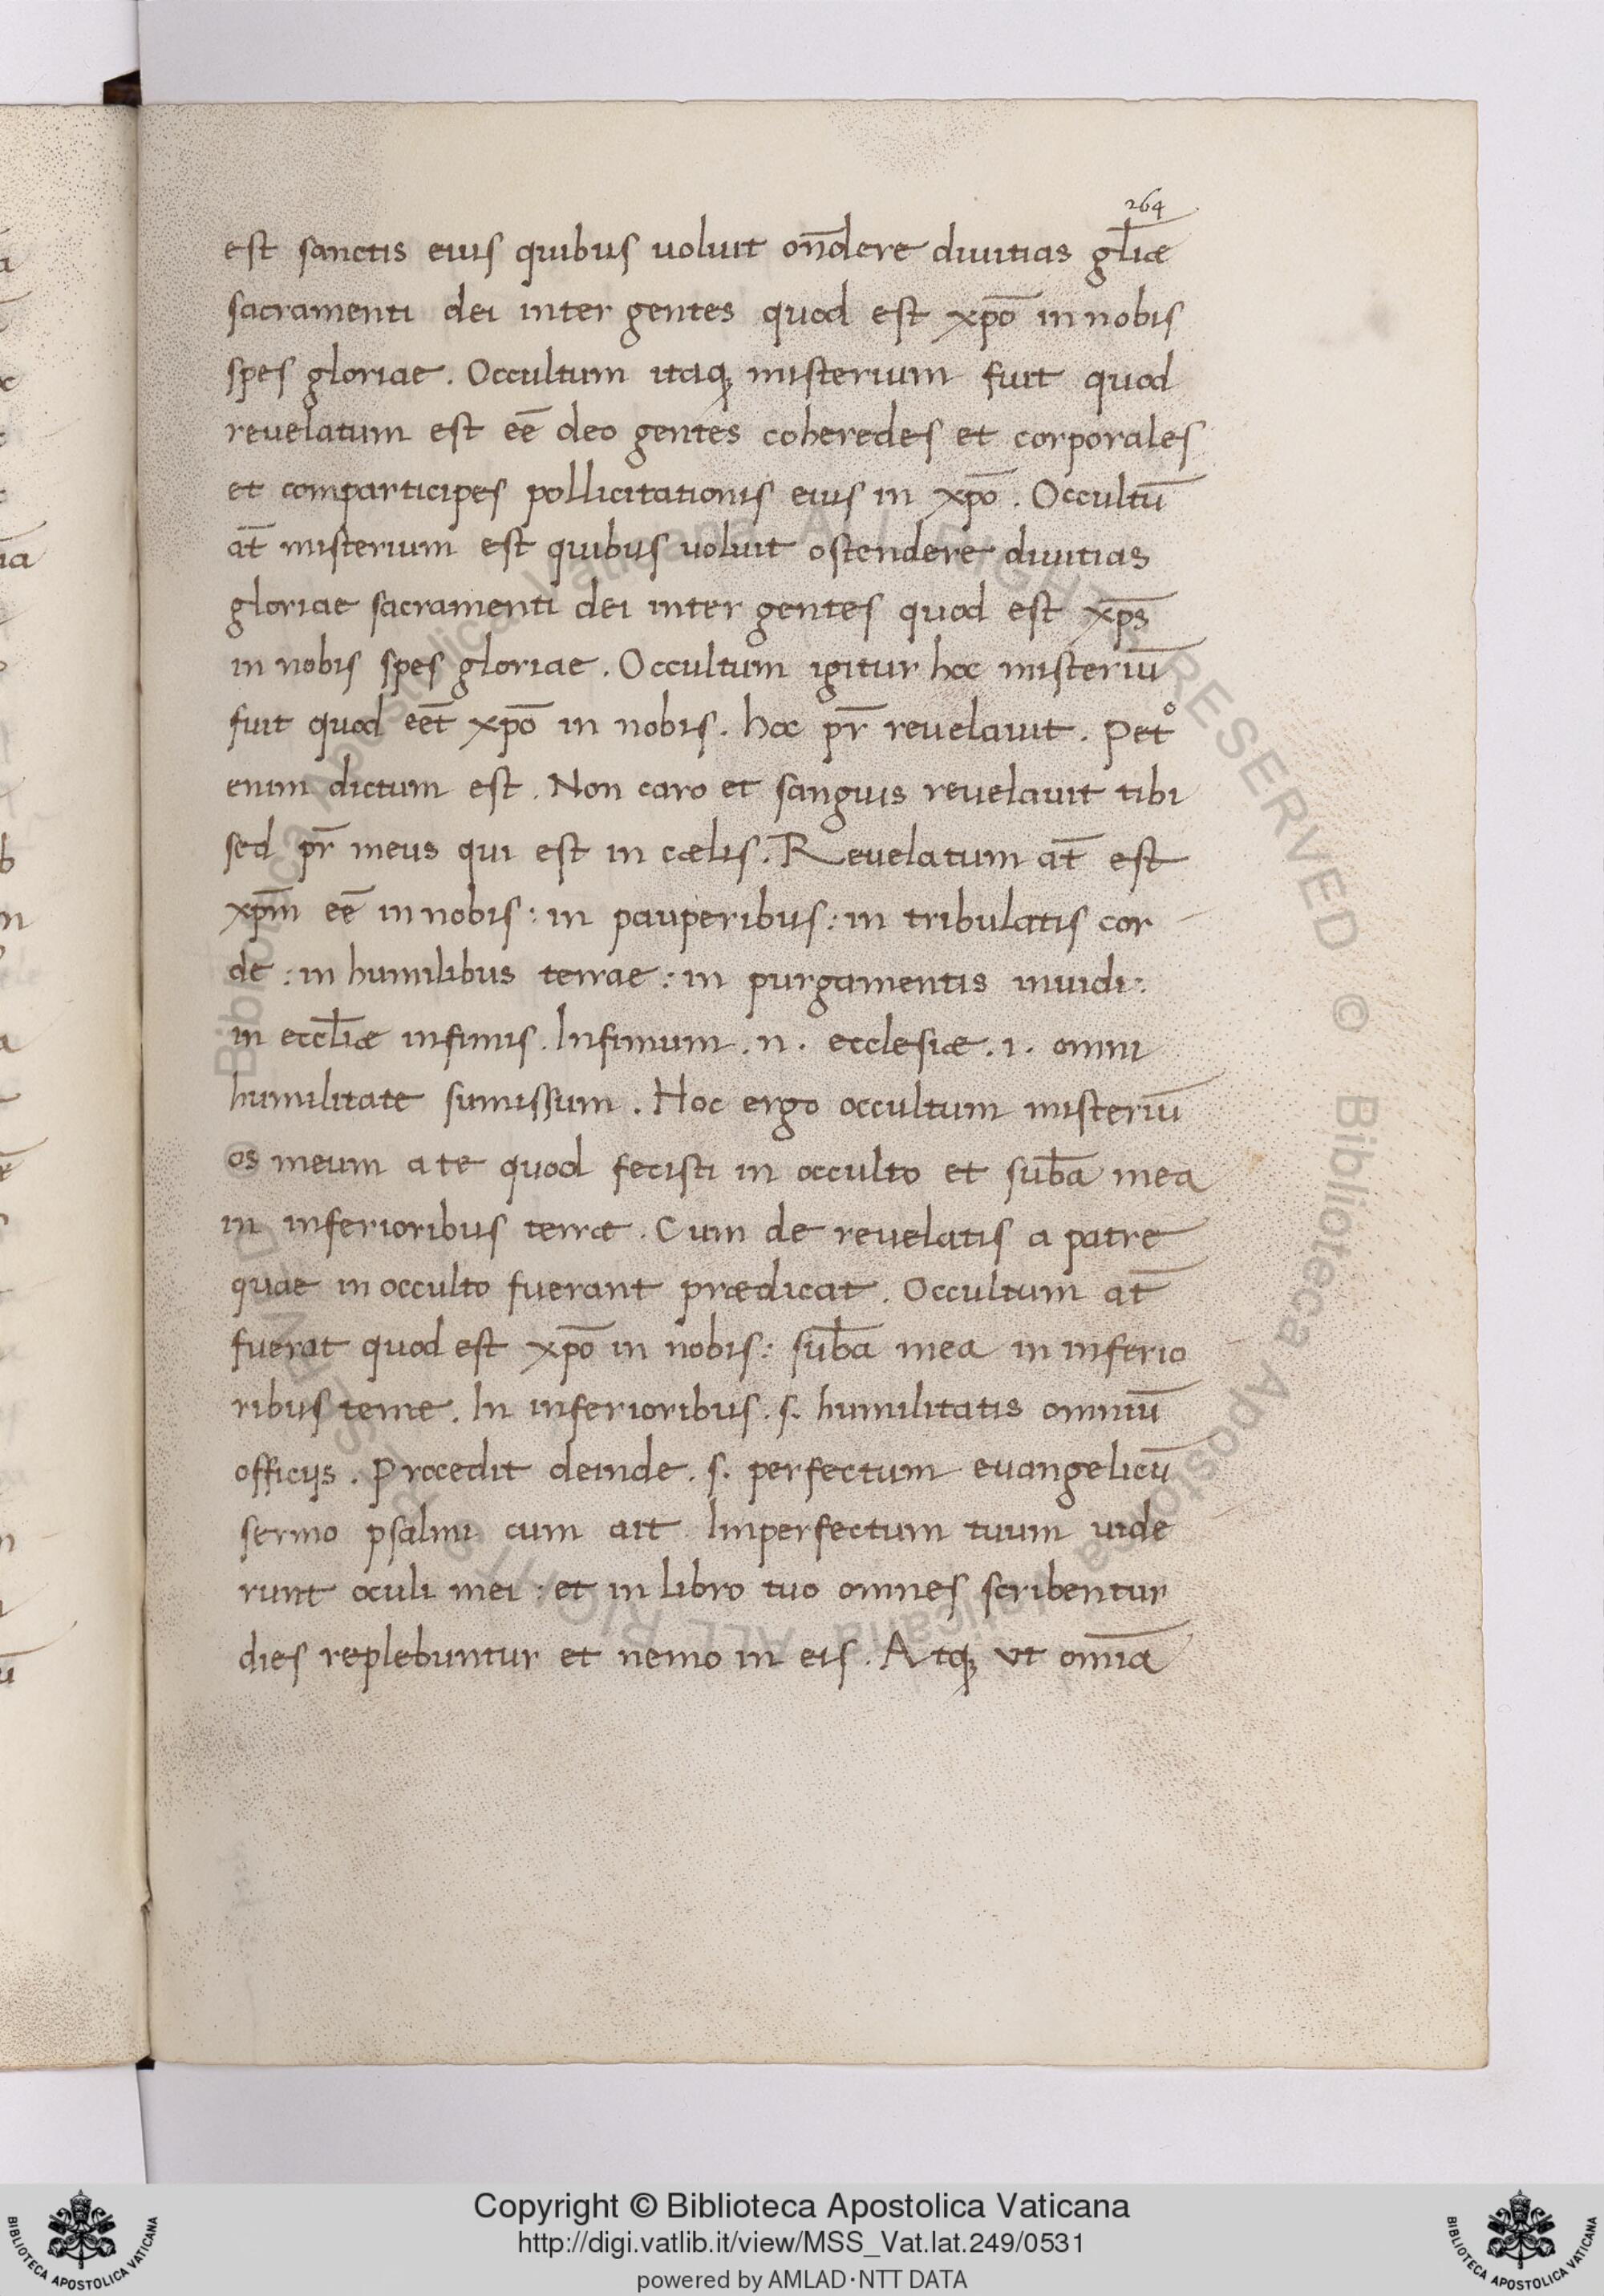 264
est sanctis eius quibus uoluit on̄dere diuitias gl̄iæ
sacramenti dei inter gentes quod est xp̄o in nobis
spes gloriae. Occultum itaq; misterium fuit quod
reuelatum est eē deo gentes coheredes et corporales
et comparticipes pollicitationis eius in xp̄o. Occultū
at̄ misterium est quibus uoluit ostendere diuitias
gloriae sacramenti dei inter gentes quod est xp̄s
in nobis spes gloriae. Occultum igitur hoc misteriū
fuit quod eēt xp̄o in nobis. hoc pr̄ reuelauit. Pet°
enim dictum est. Non caro et sanguis reuelauit tibi
sed pr̄ meus qui est in cælis. Reuelatum at̄ est
xp̄m eē in nobis: in pauperibus: in tribulatis cor
de: in humilibus terrae: in purgamentis
in eccl̄iæ infimis. Infimum .n. ecclesiæ .i. omni
humilitate sumissum. Hoc ergo occultum misteriū
os meum a te quod fecisti in occulto et sub̄a mea
in inferioribus terræ. Cum de reuelatis a patre
quae in occulto fuerant prædicat. Occultum at̄
fuerat quod est xp̄o in nobis: sub̄a mea in inferio
ribus terræ. In inferioribus .s. humilitatis omniū
officijs. Procedit deinde .s. perfectum euangelicū
sermo psalmi cum ait Imperfectum tuum uide
runt oculi mei: et in libro tuo omnes scribentur
dies replebuntur et nemo in eis. Atq; ut omīa
Copyright © Biblioteca Apostolica Vaticana
http://digi.vatlib.it/view/MSS_Vat.lat.249/0531
powered by AMLAD·NTT DATA
BIBLIOTECA APOSTOLICA VATICANA
BIBLIOTECA APOSTOLICA VATICANA